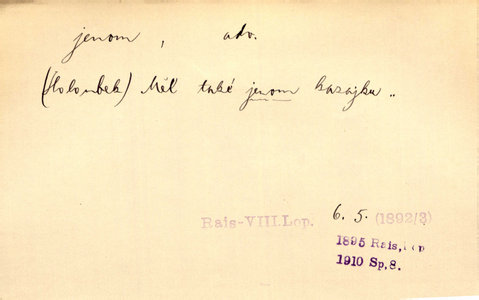 jenom, adv.
(Holoubek) Měl také jenom kazajku..
Rais-VIII.Lop. 6. 5. (1892/3)
1895 Rais, Lop
1910 Sp,8.